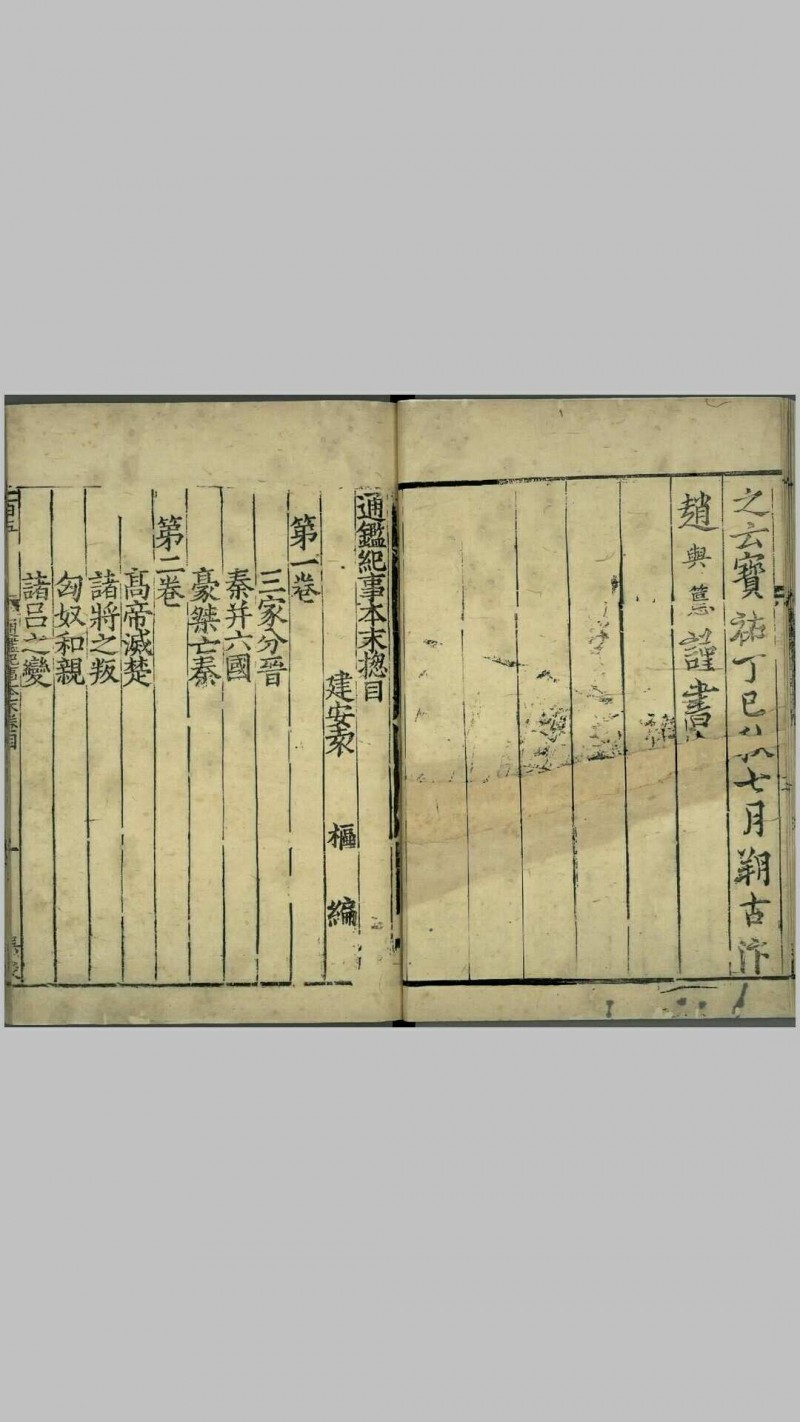 之云寶祐丁巳秋七月朔古汴
趙與𥲅謹書
通鑑紀事本末揔目
建安袁樞編
第一卷
三家分晉
秦并六國
豪桀亡秦
第二卷
髙帝滅楚
諸將之叛
匈奴和親
諸呂之變